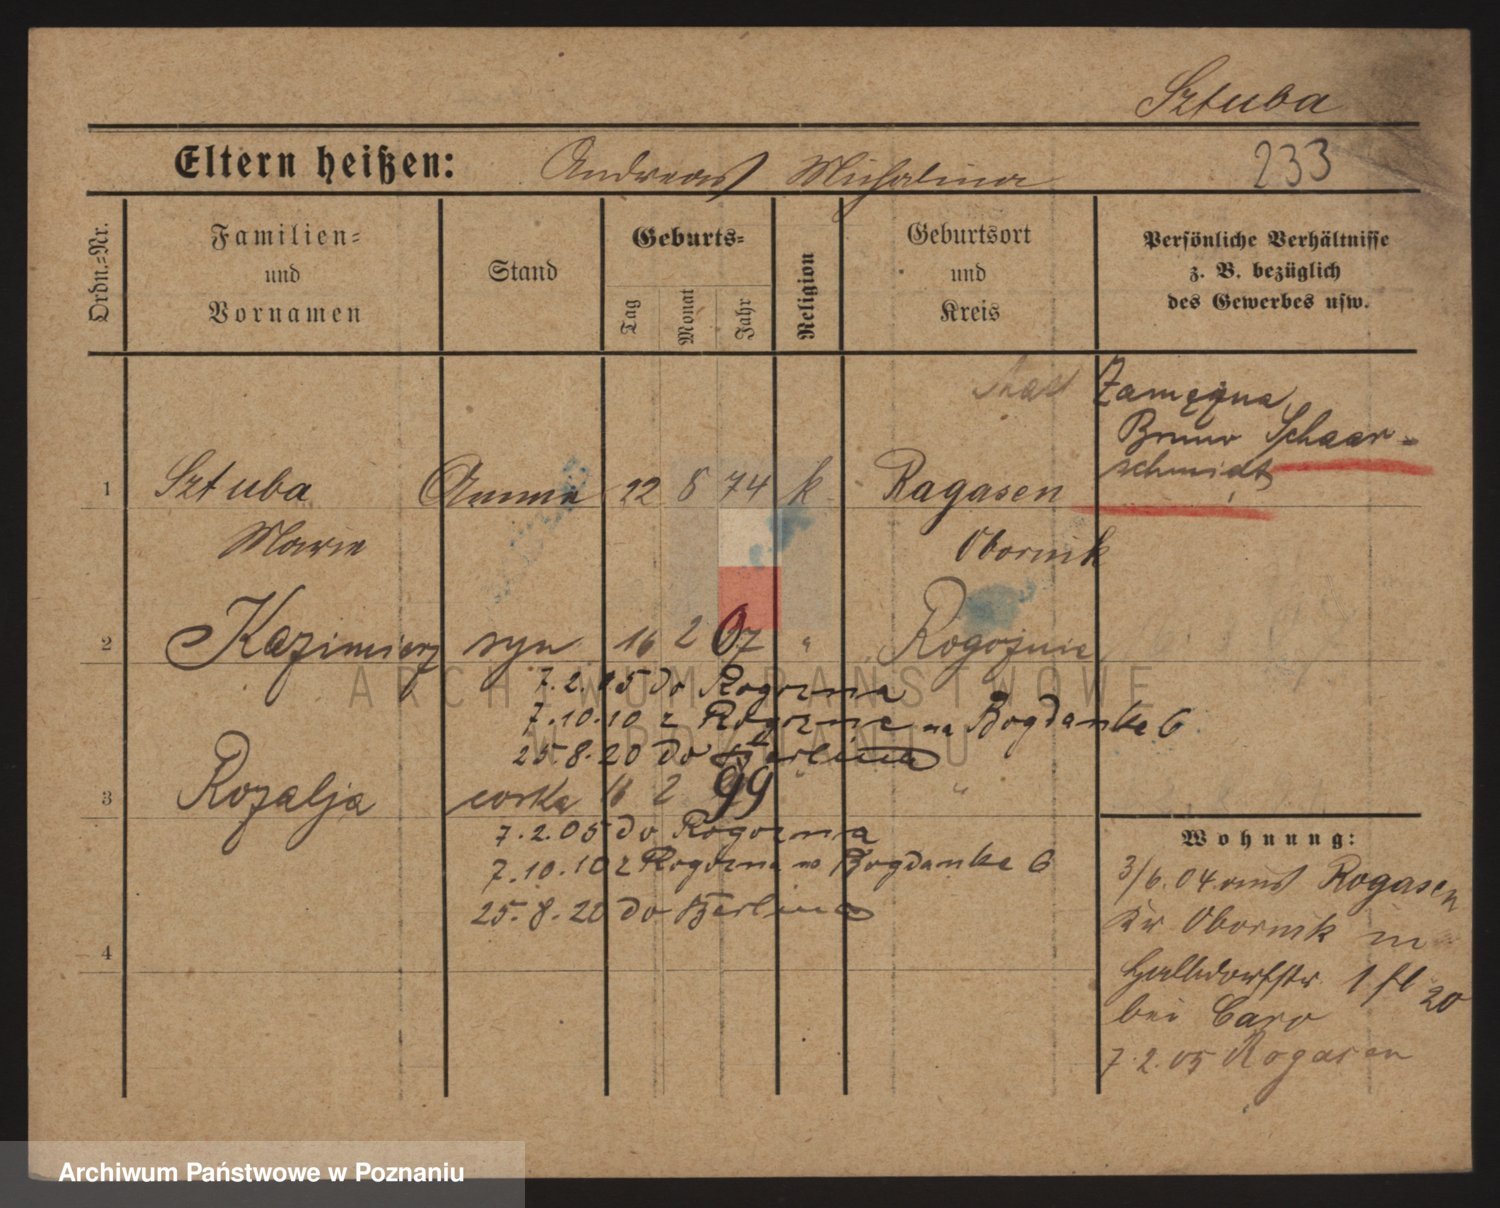 Sztuba
Eltern heißen: Andreas Michalina 233
Ordn.-Nr. Familien- und Vornamen Stand Geburts- Tag Monat Jahr Religion Geburtsort und Kreis Persönliche Verhältnisse z. B. bezüglich des Gewerbes usw.
Zamężna
Bruno Schaar-
schmidt
1 Sztuba Amme 22 8 74 k Ragasen
Marie Obornik
2 Kazimierz syn 16 2 07 " Rogoźnie
7.2.05 do Rogozna
7.10.10 z Rogozna na Bogdanka 6
25.8.20 do Berlina
3 Rozalja corka 16 2 99 "
7.2.05 do Rogozna
7.10.10 z Rogozna na Bogdanka 6
25.8.20 do Berlina
4
Wohnung:
3/6.04 aus Rogasen
Kr Obornik in
1 fl 20
bei Caro
7.2.05 Rogasen
ARCHIWUM PAŃSTWOWE
W POZNANIU
Archiwum Państwowe w Poznaniu